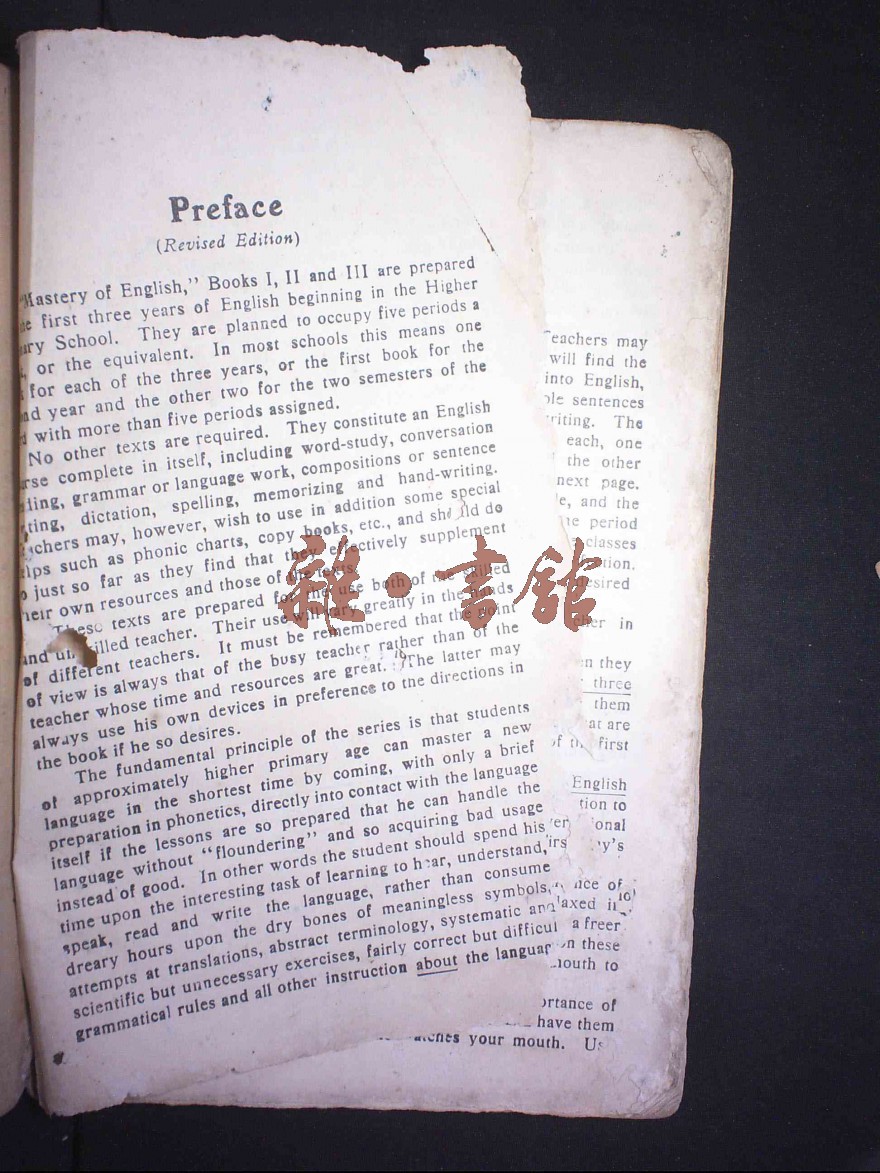 Preface
(Revised Edition)
"Mastery of English," Books I, II and III are prepared
first three years of English beginning in the Higher
School. They are planned to occupy five periods a
or the equivalent. In most schools this means one
for each of the three years, or the first book for the
year and the other two for the two semesters of the
with more than five periods assigned.
No other texts are required. They constitute an English
complete in itself, including word-study, conversation
grammar or language work, compositions or sentence
dictation, spelling, memorizing and hand-writing.
may, however, wish to use in addition some special
such as phonic charts, copy books, etc., and should do
just so far as they find that they effectively supplement
their own resources and those of the texts.
These texts are prepared for the use both of the skilled
and unskilled teacher. Their use will vary greatly in the hands
of different teachers. It must be remembered that the point
of view is always that of the busy teacher rather than of the
teacher whose time and resources are great. The latter may
always use his own devices in preference to the directions in
the book if he so desires.
The fundamental principle of the series is that students
of approximately higher primary age can master a new
language in the shortest time by coming, with only a brief
preparation in phonetics, directly into contact with the language
itself if the lessons are so prepared that he can handle the
language without "floundering" and so acquiring bad usage
instead of good. In other words the student should spend his
time upon the interesting task of learning to hear, understand,
speak, read and write the language, rather than consume
dreary hours upon the dry bones of meaningless symbols,
attempts at translations, abstract terminology, systematic and
scientific but unnecessary exercises, fairly correct but difficul
grammatical rules and all other instruction about the languag
Teachers may
will find the
into English,
sentences
The
each, one
the other
next page.
and the
period
classes
desired
in
they
three
them
at are
of the first
English
tion to
of
a freer
these
mouth to
of
have them
your mouth.
雜·書館